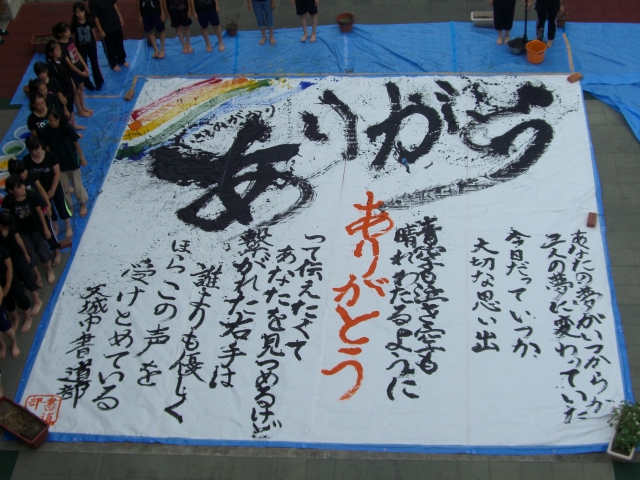 ありがとう
あなたの夢がいつからか
二人の夢に変わっていた
今日だっていつか
大切な思い出
青空も泣き空も
晴れわたるように
ありがとう
って伝えたくて
あなたを見つめるけど
繋がれた右手は
誰よりも優しく
ほら この声を
受けとめている
天城中書道部